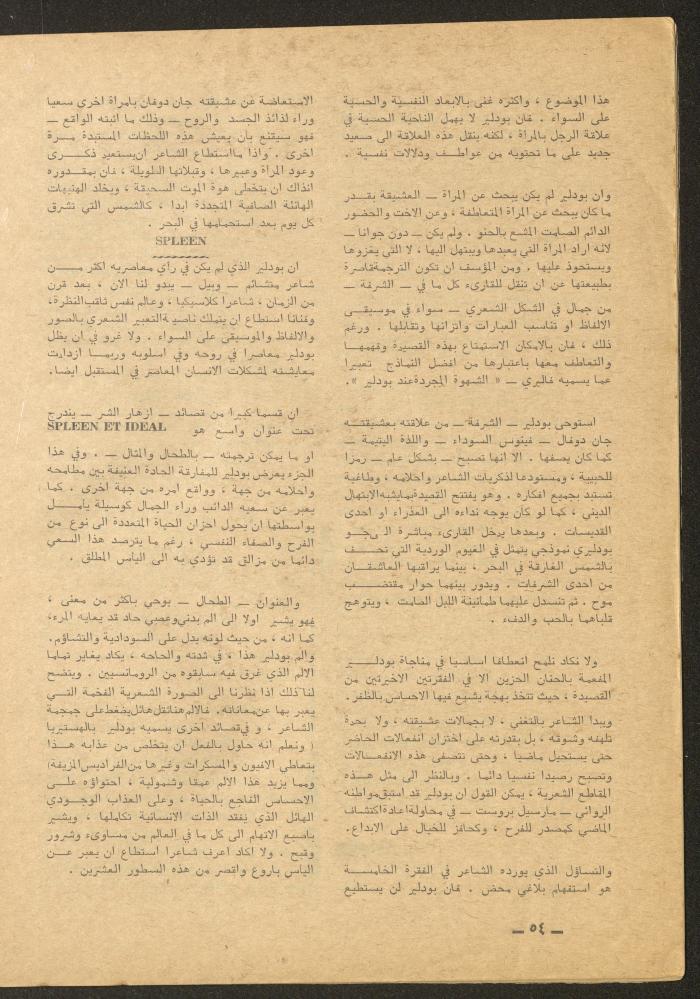 هذا الموضوع ، واكثره غنى بالابعاد النفسية والحسية
على السواء . فان بودلير لا يهمل الناحية الحسية في
علاقة الرجل بالمراة ، لكنه ينقل هذه العلاقة الى صعيد
جديد على ما تحتويه من عواطف ودلالات نفسية .
وان بودلير لم يكن يبحث عن المراة ــ العشيقة بقدر
ما كان يبحث عن المراة المتعاطفة ، وعن الاخت والحضور
الدائم الصامت المشع بالحنو . ولم يكن ــ دون جوانا ــ
لانه اراد المراة التي يعبدها ويبتهل اليها ، لا التي يغزوها
ويستحوذ عليها . ومن المؤسف ان تكون الترجمة قاصرة
بطبيعتها عن ان تنقل للقارىء كل ما في ــ الشرفة ــ
من جمال في الشكل الشعري ــ سواء في موسيقى
الالفاظ او تناسب العبارات واتزانها وتقابلها . ورغم
ذلك ، فان بالامكان الاستمتاع بهذه القصيدة وفهمها
والتعاطف معها باعتبارها من افضل النماذج تعبيرا
عما يسميه فاليري ــ « الشهوة المجردة عند بودلير » .
استوحى بودلير ــ الشرفة ــ من علاقته بعشيقته
جان دوفال ــ فينوس السوداء ــ واللذة اليتيمة ــ
كما كان يصفها . الا انها تصبح ــ بشكل عام ــ رمزا
للحبيبة ، ومستودعا لذكريات الشاعر واحلامه ، وطاغية
تستبد بجميع افكاره . وهو يفتتح القصيدة بما يشبه الابتهال
الديني ، كما لو كان يوجه نداءه الى العذراء او احدى
القديسات . وبعدها يدخل القارىء مباشرة الى جو
بودليري نموذجي يتمثل في الغيوم الوردية التي تحف
بالشمس الغارقة في البحر ، بينما يراقبها العاشقان
من احدى الشرفات . ويدور بينهما حوار مقتضب
موح . ثم تنسدل عليهما طمانينة الليل الصامت ، ويتوهج
قلباهما بالحب والدفء .
ولا نكاد نلمح انعطافا اساسيا في مناجاة بودلير
المفعمة بالحنان الحزين الا في الفقرتين الاخيرتين من
القصيدة ، حيث تتخذ بهجة يشيع فيها الاحساس بالظفر .
ويبدا الشاعر بالتغني ، لا بجمالات عشيقته ، ولا بحرة
تلهفه وشوقه ، بل بقدرته على اختزان انفعالات الحاضر
حتى يستحيل ماضيا ، وحتى تتصفى هذه الانفعالات
وتصبح رصيدا نفسيا دائما . وبالنظر الى مثل هذه
المقاطع الشعرية ، يمكن القول ان بودلير قد استبق مواطنه
الروائي ــ مارسيل بروست ــ في محاولة اعادة اكتشاف
الماضي كمصدر للفرح ، وكحافز للخيال على الابداع .
والتساؤل الذي يورده الشاعر في الفقرة الخامسة
هو استفهام بلاغي محض . فان بودلير لن يستطيع
الاستعاضة عن عشيقته جان دوفان بامراة اخرى سعيا
وراء لذائذ الجسد والروح ــ وذلك ما اثبته الواقع ــ
فهو سيقنع بان يعيش هذه اللحظات المستبدة مرة
اخرى . واذا ما استطاع الشاعر ان يستعير ذكرى
وعود المراة وعبيرها ، وقبلاتها الطويلة ، فان بمقدوره
انذاك ان يتخطى هوة الموت السحيقة ، ويخلد الهنيهات
الهائلة الصافية المتجددة ابدا ، كالشمس التي تشرق
كل يوم بعد استحمامها في البحر .
SPLEEN
ان بودلير الذي لم يكن في راي معاصريه اكثر من
شاعر متشائم ــ وبيل ــ يبدو لنا الان ، بعد قرن
من الزمان ، شاعرا كلاسيكيا ، وعالم نفس ثاقب النظرة ،
وفنانا استطاع ان يتملك ناصية التعبير الشعري بالصور
والالفاظ والموسيقى على السواء . ولا غرو في ان يظل
بودلير معاصرا في روحه وفي اسلوبه وربما ازدادت
معايشته لمشكلات الانسان المعاصر في المستقبل ايضا .
ان قسما كبيرا من قصائد ــ ازهار الشر ــ يندرج
تحت عنوان واسع هو SPLEEN ET IDEAL
او ما يمكن ترجمته ــ بالطحال والمثال ــ . وفي هذا
الجزء يعرض بودلير للمفارقة الحادة العنيفة بين مطامحه
واحلامه من جهة ، وواقع امره من جهة اخرى . كما
يعبر عن سعيه الدائب وراء الجمال كوسيلة يامل
بواسطتها ان يحول احزان الحياة المتعددة الى نوع من
الفرح والصفاء النفسي ، رغم ما يترصد هذا السعي
دائما من مزالق قد تؤدي به الى الياس المطلق .
والعنوان ــ الطحال ــ يوحي باكثر من معنى ،
فهو يشير اولا الى الم بدني وعصبي حاد قد يعانيه المرء ،
كما انه ، من حيث لونه يدل على السودادية والتشاؤم .
والم بودلير هذا ، في شدته والحاحه ، يكاد يغاير تماما
الالم الذي غرق فيه سابقوه من الرومانسيين . ويتضح
لنا ذلك اذا نظرنا الى الصورة الشعرية الفخمة التي
يعبر بها عن معاناته . فالالم هنا ثقل هائل يضغط على جمجمة
الشاعر ، و في قصائد اخرى يسميه بودلير بالهستيريا
( ونعلم انه حاول بالفعل ان يتخلص من عذابه هذا
بتعاطي الافيون والمسكرات وغيرها من الفراديس المزيفة )
ومما يزيد هذا الالم عمقا وشمولية ، احتواؤه على
الاحساس الفاجع بالحياة ، وعلى العذاب الوجودي
الهائل الذي يفقد الذات الانسانية تكاملها ، ويشير
باصبع الاتهام الى كل ما في العالم من مساوىء وشرور
وقبح . ولا اكاد اعرف شاعرا استطاع ان يعبر عن
الياس باروع واقصر من هذه السطور العشرين .
ــ ٥٤ ــ